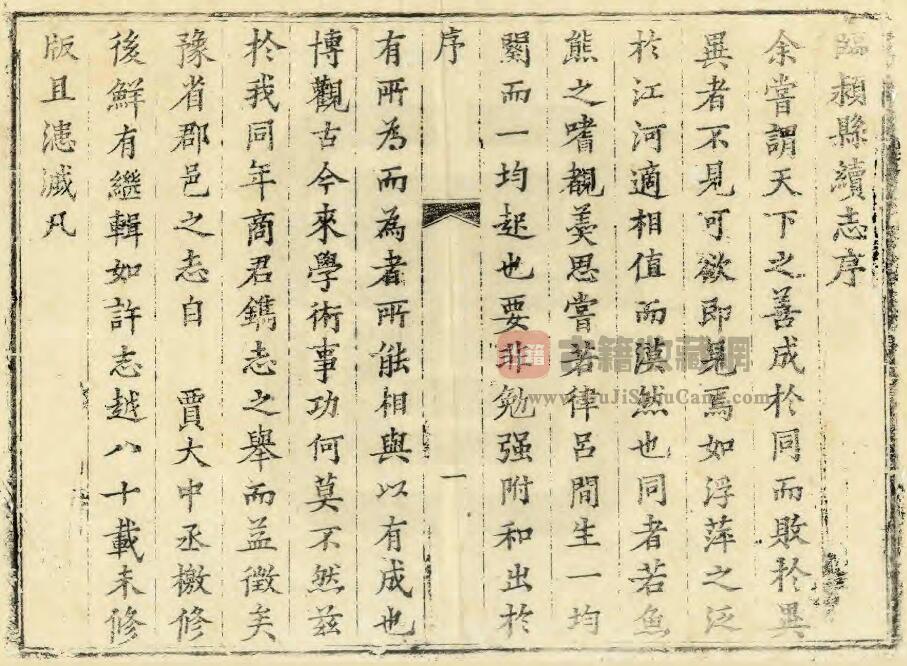 臨潁縣續志序
余嘗謂天下之善成於同而敗於異
異者不見可欲即見焉如浮萍之泛
於江河適相值而漠然也同者若魚
熊之嗜覩羮思嘗若律呂間生一均
闋而一均起也要非勉强附和出於
序
一
有所為而為者所能相與以有成也
博觀古今來學術事功何莫不然兹
於我同年商君鐫志之舉而益徵矣
豫省郡邑之志自 賈大中丞檄修
後鮮有繼輯如許志越八十載未修
版且漶滅凡
古籍典藏網
www.GuJiShuCang.com